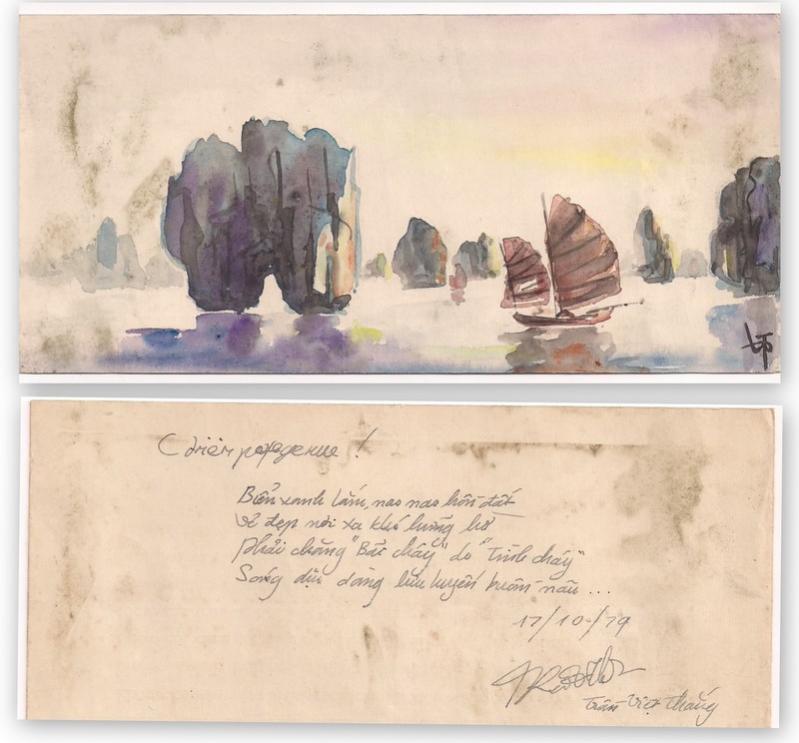 С днём рождение !
Biển xanh lắm, nao nao hồn đất
Vẻ đẹp nơi xa khó hững hờ
Phải chăng "Bãi cháy" do "Tình cháy"
Sóng dịu dàng lưu luyến buồm nâu ...
17/10/79
Trần Việt Thắng